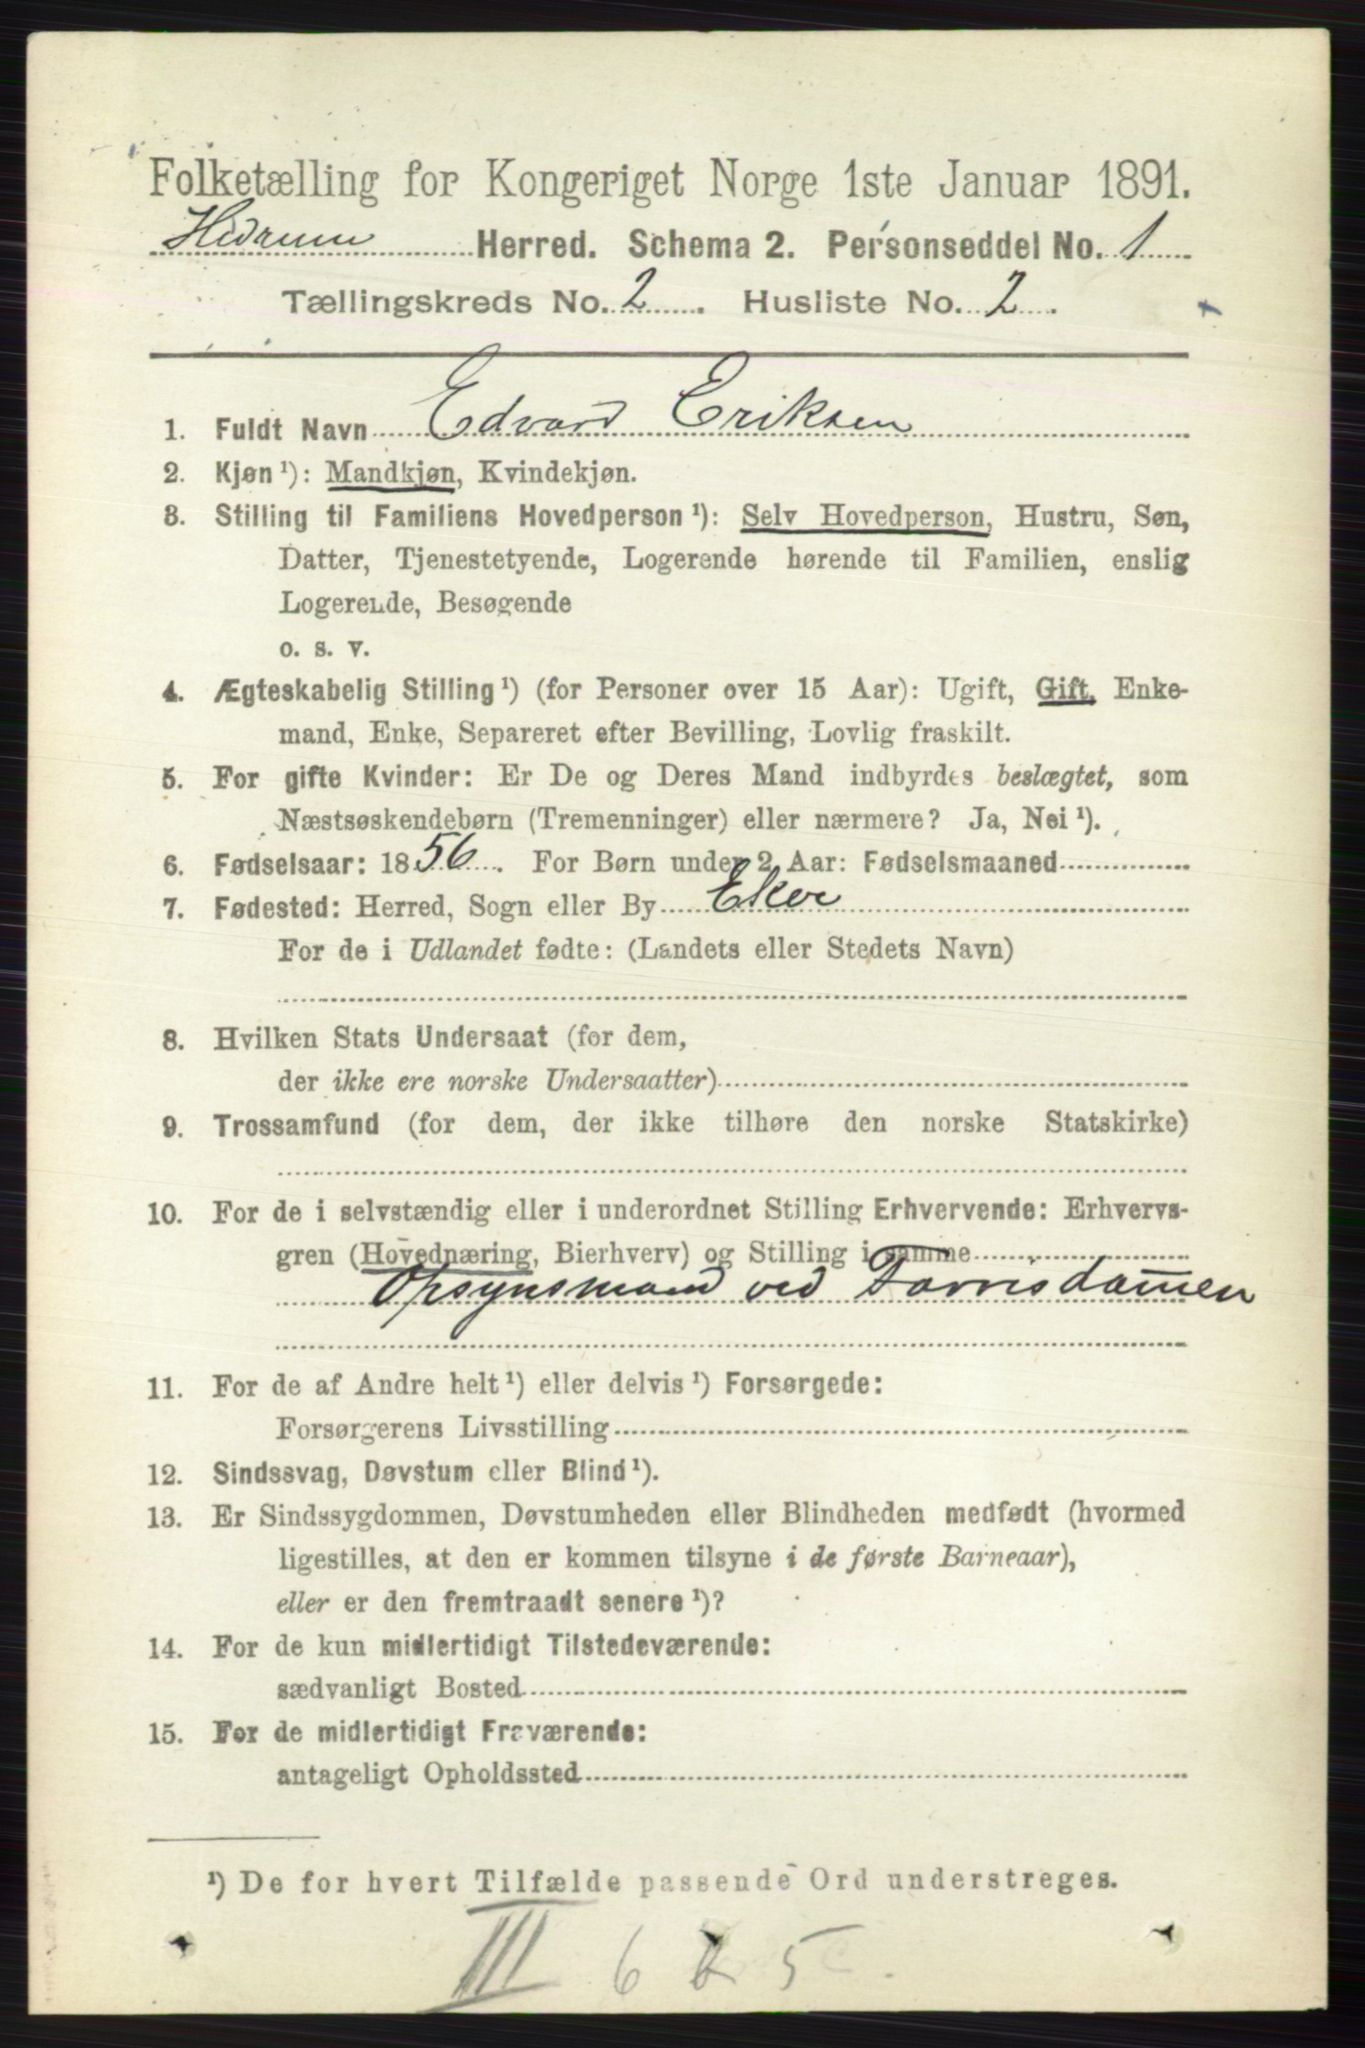 Folketælling for Kongeriget Norge 1ste Januar 1891.
Hedrum Herred. Schema 2. Personseddel No. 1
Tællingskreds No. 2. Husliste No. 2.
1. Fuldt Navn Edvard Eriksen
2. Kjøn ¹): Mandkjøn, Kvindekjøn.
3. Stilling til Familiens Hovedperson ¹): Selv Hovedperson, Hustru, Søn,
Datter, Tjenestetyende, Logerende hørende til Familien, enslig
Logerende, Besøgende
o. s. v.
4. Ægteskabelig Stilling ¹) (for Personer over 15 Aar): Ugift, Gift, Enke-
mand, Enke, Separeret efter Bevilling, Lovlig fraskilt.
5. For gifte Kvinder: Er De og Deres Mand indbyrdes beslægtet, som
Næstsøskendebørn (Tremenninger) eller nærmere? Ja, Nei ¹).
6. Fødselsaar: 1856. For Børn under 2 Aar: Fødselsmaaned
7. Fødested: Herred, Sogn eller By Eker
For de i Udlandet fødte: (Landets eller Stedets Navn)
8. Hvilken Stats Undersaat (for dem,
der ikke ere norske Undersaatter)
9. Trossamfund (for dem, der ikke tilhøre den norske Statskirke)
10. For de i selvstændig eller i underordnet Stilling Erhvervende: Erhvervs-
gren (Hovednæring, Bierhverv) og Stilling i samme
Opsynsmand ved Farrisdammen
11. For de af Andre helt ¹) eller delvis ¹) Forsørgede:
Forsørgerens Livsstilling
12. Sindssvag, Døvstum eller Blind ¹).
13. Er Sindssygdommen, Døvstumheden eller Blindheden medfødt (hvormed
ligestilles, at den er kommen tilsyne i de første Barneaar),
eller er den fremtraadt senere ¹)?
14. For de kun midlertidigt Tilstedeværende:
sædvanligt Bosted
15. For de midlertidigt Fraværende:
antageligt Opholdssted
¹) De for hvert Tilfælde passende Ord understreges.
III 6 5